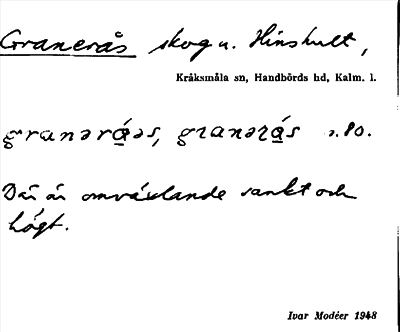 Granerås skog u. Hinshult,
Kråksmåla sn, Handbörds hd, Kalm. l.
granərá̱əs, granərá̱s s. 80.
Där är omväxlande sankt och
högt.
Ivar Modéer 1948